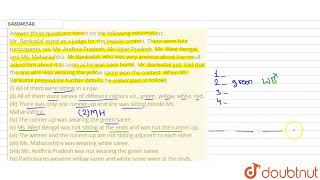 648046548
Answer these questions based on the following information:
Mr. Bankatlal acted as a judge for the beauty contest. There were four
participants, viz. Ms. Andhra Pradesh, Ms Uttar Pradesh, Ms. West Bengal,
and Ms. Maharashtra. Mr. Bankatlal, who was very anxious about the result
asked him about it as soon as he was back home. Mr. Bankatlal just told that
the one who was wearing the yellow saree won the contest. When Mr.
Bankatlal pressed for further details, he elaborated as follows:
(i) All of them were sitting in a row.
(ii) All of them wore sarees of different colours viz., green, yellow, white, red.
(iii) There was only one runner up and she was sitting beside Ms.
Maharashtra. (2)MH
(iv) The runner up was wearing the green saree.
(v) Ms. West Bengal was not sitting at the ends and was not the runner up.
(vi) The winner and the runner up are not sitting adjacent to each other.
(vii) Ms. Maharashtra was wearing white saree.
(viii) Ms. Andhra Pradesh was not wearing the green saree.
(ix) Participants wearing yellow saree and white saree were at the ends.
1 –
2 – green
3 –
4 –
doubtnut